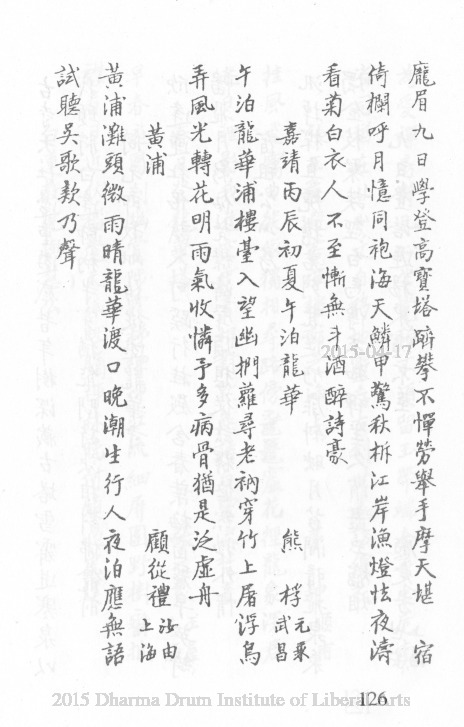 龐眉九日學登高寶塔躋攀不憚勞舉手摩天堪 宿
倚欄呼月憶同袍海天鱗甲驚秋柝江岸漁燈怯夜濤
看菊白衣人不至慚無斗酒醉詩豪
嘉靖丙辰初夏午泊龍華 熊桴 元乘 武昌
午泊龍華浦樓臺入望幽捫蘿尋老衲穿竹上屠浮鳥
弄風光轉花明雨氣收憐予多病骨猶是泛虛舟
黃浦 顧從禮 汝由 上海
黃浦灘頭微雨晴龍華渡口晚潮生行人夜泊應無語
試聽吳歌欸乃聲
126
2015-04-17
2015 Dharma Drum Institute of Liberal Arts